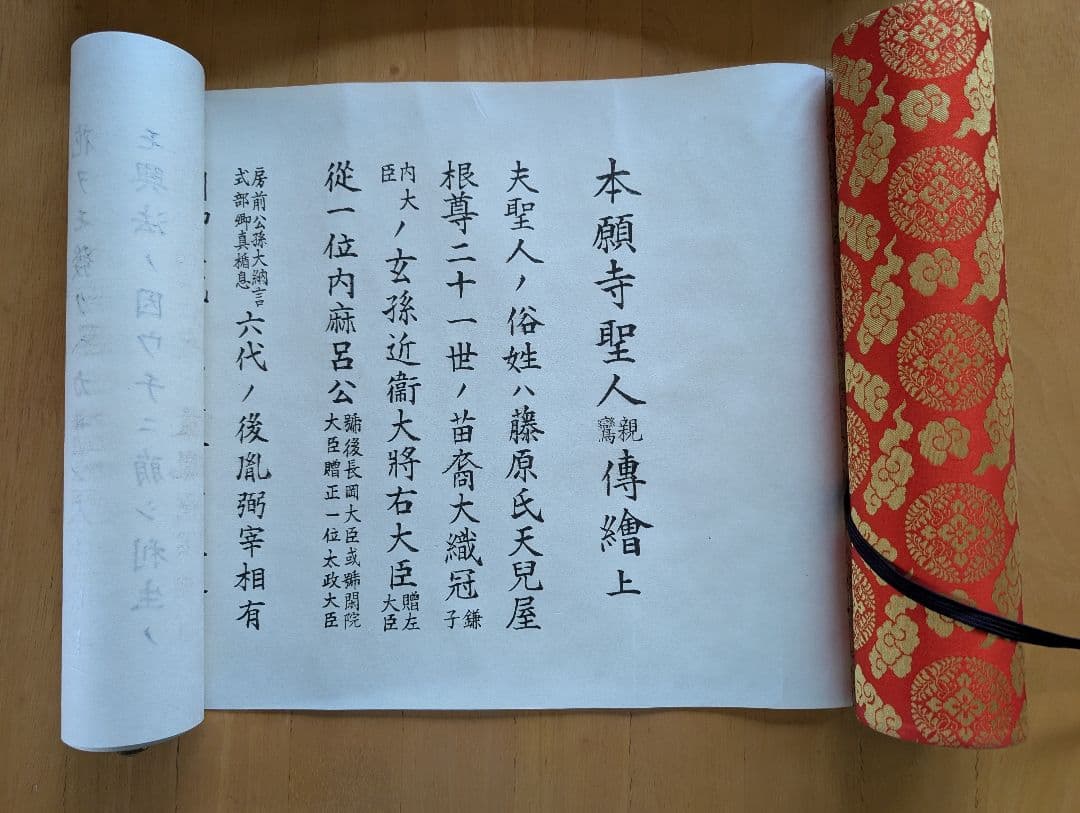 本願寺聖人親鸞傳繪上
夫聖人ノ俗姓ハ藤原氏天兒屋
根尊二十一世ノ苗裔大織冠鎌子
内大臣ノ玄孫近衞大將右大臣贈左大臣
從一位内麻呂公號後長岡大臣或號閑院大臣贈正一位太政大臣
房前公孫大納言式部卿真楯息六代ノ後胤弼宰相有
モ興法ノ因ウチニ萌シ利生ノ